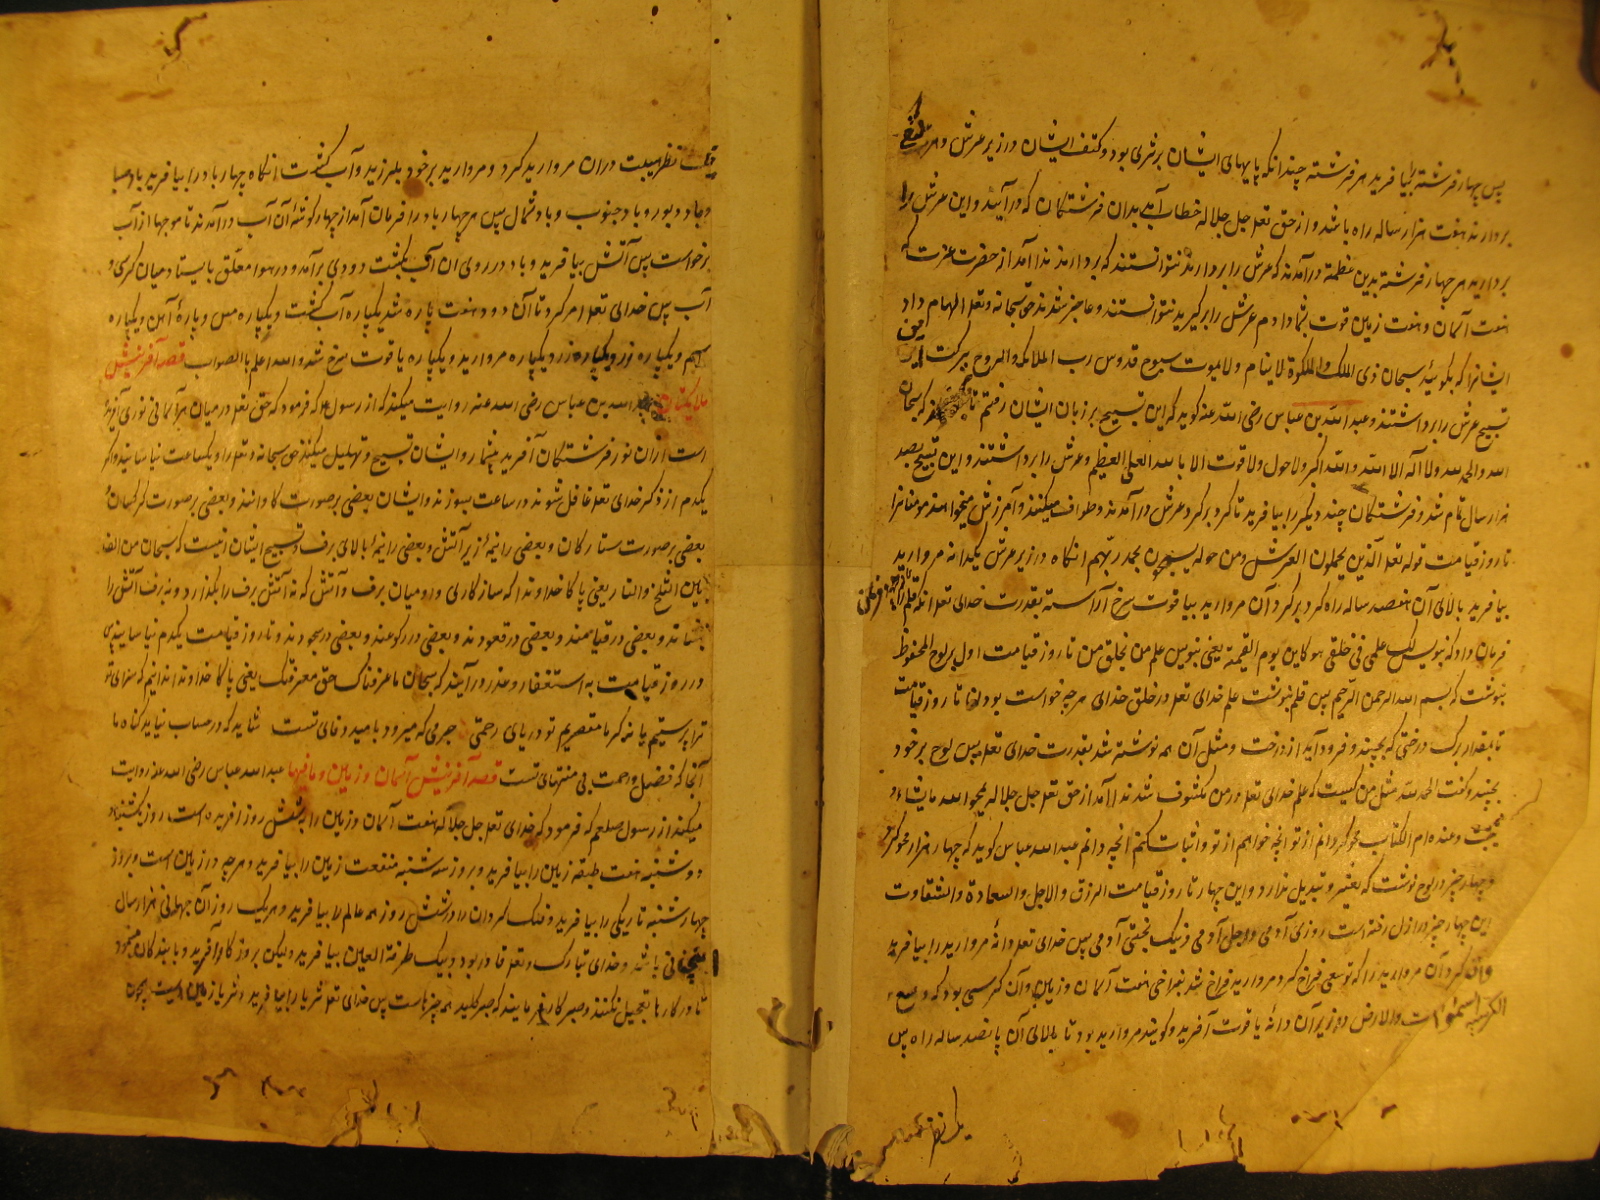 پس چهار فرشته را بیافرید هر فرشته چندانکه پایهای ایشان بر ثری بود و کتف ایشان در زیر عرش و هر
بردارند هفت هزار ساله راه باشد و از حق تعل جل جلاله خطاب آمد بدان فرشتگان که درآیند و این عرش را
بردارید هر چهار فرشته بدین عظمة درآمدند که عرش را بردارند نتوانستند که بردارند ندا آمد از حضرت عزت که
هفت آسمان و هفت زمین قوت بشما دادم عرش را برگیرید نتوانستند و عاجز شدند حق سبحانه و تعل الهام داد
ایشانرا که بگوئید سبحان ذی الملک والملکوة لاینام ولایموت سبوح قدوس رب الملائکه والروح ببرکت این
تسبیح عرش را برداشتند و عبد الله بن عباس رضی الله عنه گوید که این تسبیح بر زبان ایشان رفتم که سبحان
الله والحمد لله ولا آله الا الله والله اکبر ولاحول ولاقوت الا بالله العلی العظیم و عرش را برداشتند و این تسبیح بصد
هزار سال تمام شد و فرشتگان چند دیگر را بیافرید تا گرد بر گرد عرش درآمدند و طواف میکنند و آمرزش میخواهند مومنانرا
تا روز قیامت قوله تعل الذین یحملون العرش ومن حوله یسبحون بحمد ربهم انگاه در زیر عرش یکدانه مروارید
بیافرید بالای آن هفصد ساله راه گرد بر گرد آن مروارید بیاقوت سرخ آراسته بقدرت خدای تعل انگه قلم را
فرمان داد که بنویس اکتب علمی فی خلقی هو کاین یوم القیمة یعنی بنویس علم من بخلق من تا روز قیامت اول بر لوح المحفوظ
بنوشت که بسم الله الرحمن الرحیم پس قلم بنوشت علم خدای تعل در خلق خدای هرچه خواست بودن تا روز قیامت
تا بمقدار برک درختی که بجنبد و فرود آید از درخت و مثل آن همه نوشته شد بقدرت خدای تعل پس لوح بر خود
بجنبید و گفت الحمد لله مثل من کیست که علم خدای تعل در من مکشوف شد ندا آمد از حق تعل جل جلاله یمحوا الله مایشاء و
یثبت وعنده ام الکتاب محو گردانم از تو آنچه خواهم از تو و اثبات کنم آنچه دانم عبد الله عباس گوید که چهار هزار محو کرد
و چهار چیز در لوح نوشت که تغییر و تبدیل ندارد و این چهار تا روز قیامت الرزق والاجل والسعادة والشقاوت
این چهار چیز در ازل رفته است روزی آدمی و اجل آدمی و نیک بختی آدمی پس خدای تعل دانهٔ مروارید را بیافرید
و آن مروارید را که توسعی فراخ گرد مروارید فراخ شد بفراخی هفت آسمان و زمین و آن کرسی بود که وسع
الکرسیه السموات والارض و در زیر آن دانهٔ یاقوت آفرید و گویند مروارید بود تا بالای آن پانصد ساله راه پس
یک نظر
نظر هیبت دران مروارید کرد و مروارید بر خود بلرزید و آب گشت انگاه چهار باد را بیافرید باد صبا
و باد دبور و باد جنوب و باد شمال پس هر چهار باد را فرمان آمد از چهار گوشهٔ آن آب درآمدند تا موجها از آب
برخواست پس آتش بیافرید و باد در روی آن آب بگشت و دودی برآمد و در هوا معلق بایستاد میان کرسی و
آب پس خدای تعل امر کرد تا آن دود هفت پاره شد یکپاره آب گشت و یکپاره مس و پارهٔ آهن و یکپاره
سیم و یکپاره زر و یکپاره مروارید و یکپاره یاقوت سرخ شد والله اعلم باالصواب قصه آفرینش
ملایکتان عبد الله بن عباس رضی الله عنه روایت میکند که از رسول که فرمود که حق تعل در میان هر آسمانی نوری آفریده
است ازان نور فرشتگان آفرید بیشمار و ایشان تسبیح و تهلیل میکنند حق سبحانه و تعل را و یکساعت نیاسایند و اگر
یکدم از ذکر خدای تعل غافل شوند در ساعت بسوزند و ایشان بعضی بر صورت گاوانند و بعضی بر صورت کرکسان و
بعضی بر صورت ستارگان و بعضی را نیمهٔ زیر آتش و بعضی را نیمهٔ بالای برف و تسبیح ایشان اینست که سبحان من الف
بین الثلج والنار یعنی پاکا خداوندا که سازکاری داد میان برف و آتش که نه آتش برف را بگذارد و نه برف آتش را
بنشاند و بعضی در قیامند و بعضی در قعودند و بعضی در رکوعند و بعضی در سجودند و تا روز قیامت یکدم نیاسایند پس
در روز قیامت به استغفار و عذر درآیند که سبحان ماعرفناک حق معرفتک یعنی پاکا خداوندا ندانیم که سزای تو
ترا پرستیم یا نه گر ما مقصریم تو دریای رحمتی جرمی که میرود بامید وفای تست شاید که در حساب نیاید گناه ما
آنجا که فضل و رحمت بی منتهای تست قصه آفرینش آسمان و زمین و مافیها عبد الله عباس رضی الله عنه روایت
میکند از رسول صلعم که فرمود که خدای تعل جل جلاله هفت آسمان و زمین را بشش روز آفریده است روز یکشنبه و
دوشنبه هفت طبقه زمین را بیافرید و بروز سه شنبه منفعت زمین را بیافرید و هرچه در زمین است و بروز
چهارشنبه تاریکی را بیافرید و فلک گردان را در شش روز همه عالم را بیافرید و هر یک روز آن جهانی هزار سال
باشد و خدای تبارک و تعل قادر بود و بیک طرفة العین بیافرید ولیکن بروزگار آفرید و با بندگان بنمود
تا در کارها تعجیل نکنند و صبر کار فرمایند که صبر کلید همه چیزهاست پس خدای تعل ثریا را بیافرید و ثریا زمین است چون